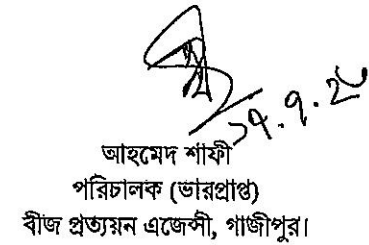 আহমেদ শাফী
পরিচালক (ভারপ্রাপ্ত)
বীজ প্রত্যয়ন এজেন্সী, গাজীপুর।